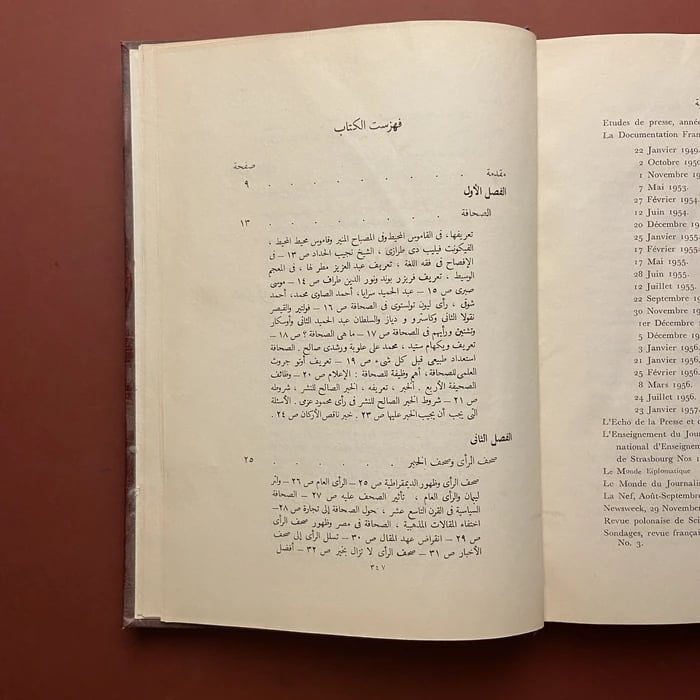 فهرست الكتاب
صفحة
مقدمة . . . . . . . . . ٩
الفصل الأول
الصحافة . . . . . . . . ١٣
تعريفها، فى القاموس المحيط وفى المصباح المنير وقاموس محيط المحيط،
الفيكونت فيليب دى طرازى ، الشيخ نجيب الحداد ص ١٣ – فى
الإفصاح فى فقه اللغة ، تعريف عبد العزيز مطر لها ، فى المعجم
الوسيط ، تعريف فريزر بوند ونور الدين طراف ص ١٤ – موسى
صبرى ص ١٥ – عبد الحميد سرايا، أحمد الصاوى محمد، أحمد
شوقى ، رأى ليون تولستوى فى الصحافة ص ١٦ – فولتير والقيصر
نقولا الثانى وكاسترو و دياز والسلطان عبد الحميد الثانى وأوسكار
وتشنين ورأيهم فى الصحافة ص ١٧ – ما هى الصحافة ؟ ص ١٨ –
تعريف ويكهام ستيد ، محمد على علوبة ورشدى صالح . الصحافة
استعداد طبيعى قبل كل شىء ص ١٩ – تعريف أوتو جروث
العلمى للصحافة، أهم وظيفة للصحافة : الإعلام ص ٢٠ – وظائف
الصحيفة الأربع . الخبر ، تعريفه ، الخبر الصالح للنشر ، شروطه
ص ٢١ – شروط الخبر الصالح للنشر فى رأى محمود عزمى . الأسئلة
التى يجب أن يجيب الخبر عليها ص ٢٣ . خبر ناقص الأركان ص ٢٤ .
الفصل الثانى
صحف الرأى وصحف الخبر . . . . . . ٢٥
صحف الرأى وظهور الديمقراطية ص ٢٥ – الرأى العام ص ٢٦ – والتر
ليبمان والرأى العام ، تأثير الصحف عليه ص ٢٧ – الصحافة
السياسية فى القرن التاسع عشر ، تحول الصحافة إلى تجارة ص ٢٨ –
اختفاء المقالات المذهبية ، الصحافة فى مصر وظهور صحف الرأى
ص ٢٩ – انقراض عهد المقال ص ٣٠ – تسلل الرأى إلى صحف
الأخبار ص ٣١ – صحف الرأى لا تزال بخير ص ٣٢ – أفضل
٣٤٧
Etudes de presse, année
La Documentation Fran
22 Janvier 1949.
2 Octobre 195
1 Novembre 19
7 Mai 1953.
27 Février 1954
12 Juin 1954.
20 Décembre 19
25 Janvier 1955
17 Février 1955
17 Mai 1955.
28 Juin 1955.
12 Juillet 1955.
22 Septembre 19
30 Novembre 19
1er Décembre 19
5 Décembre 19
3 Janvier 1956.
21 Janvier 1956,
25 Février 1956.
8 Mars 1956.
24 Juillet 1956.
23 Janvier 1957.
L'Echo de la Presse et d
L'Enseignement du Jour
national d'Enseignem
de Strasbourg Nos 1
Le Monde Diplomatique
Le Monde du Journalis
La Nef, Août-Septembr
Newsweek, 29 November
Revue polonaise de Sci
Sondages, revue français
No. 3.